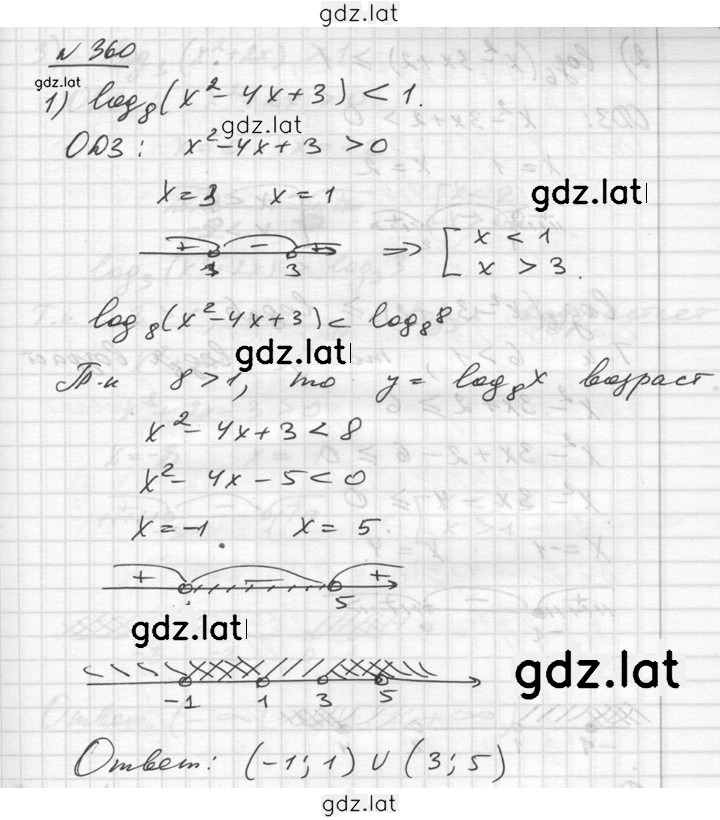 gdz.lat
N 360
gdz.lat
1) log₈(x² - 4x + 3) < 1.
gdz.lat
ОДЗ: x² - 4x + 3 > 0
x = 3 x = 1
gdz.lat
+ - +
1 3
⇒ [ x < 1
x > 3
log₈(x² - 4x + 3) < log₈8
gdz.lat
Т.к 8 > 1, то y = log₈x возраст
x² - 4x + 3 < 8
x² - 4x - 5 < 0
x = -1 x = 5
+ - +
5
gdz.lat
gdz.lat
-1 1 3 5
Ответ: (-1; 1) ∪ (3; 5)
gdz.lat